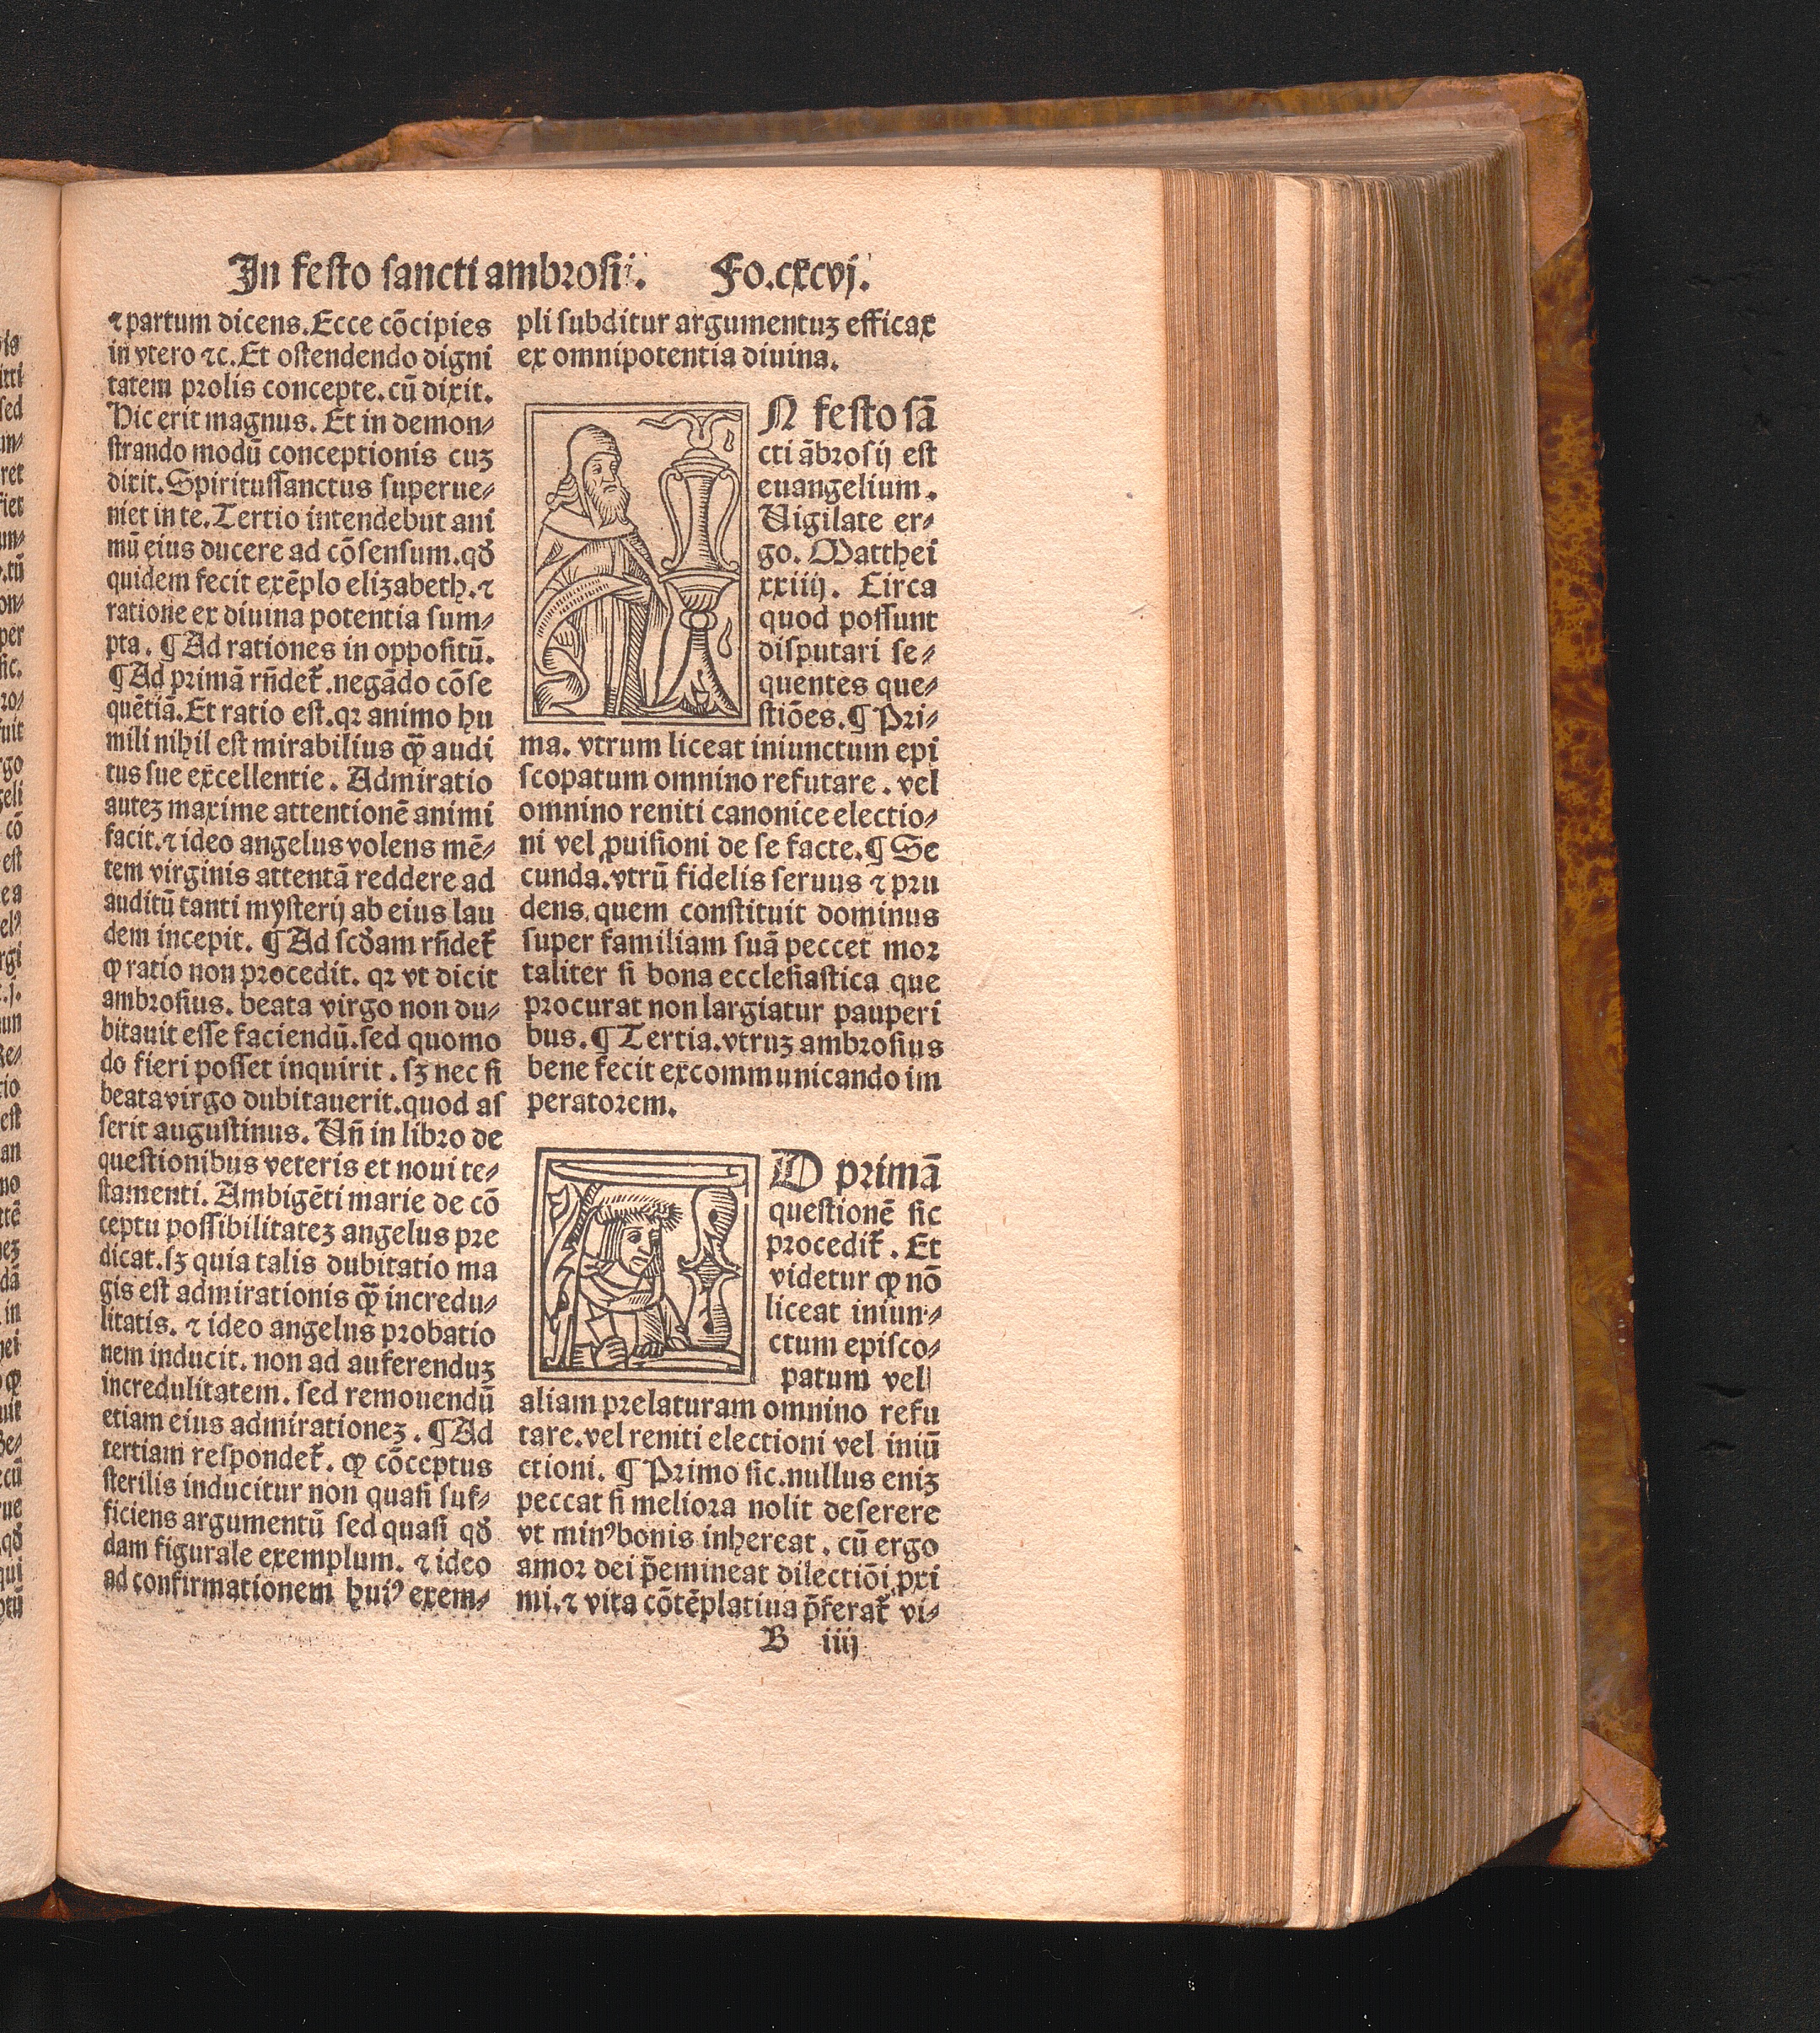 In festo sancti ambrosij. Fo.cxcvj.
⁊ partum dicens. Ecce cōcipies
in vtero ⁊c. Et ostendendo digni
tatem prolis concepte. cū dixit.
Hic erit magnus. Et in demon⸗
strando modū conceptionis cuꝫ
dixit. Spiritussanctus superue⸗
niet in te. Tertio intendebat ani
mū eius ducere ad cōsensum. qđ
quidem fecit exēplo elizabeth. ⁊
ratione ex diuina potentia sum⸗
pta. ¶ Ad rationes in oppositū.
¶ Ad primā rñdet᷑. negādo cōse
quētiā. Et ratio est. qꝛ animo hu
mili nihil est mirabilius ꝙ̄ audi
tus sue excellentie. Admiratio
auteꝫ maxime attentionē animi
facit. ⁊ ideo angelus volens mē⸗
tem virginis attentā reddere ad
auditū tanti mysterij ab eius lau
dem incepit. ¶ Ad scđam rñdet᷑
ꝙ ratio non procedit. qꝛ vt dicit
ambrosius. beata virgo non du⸗
bitauit esse faciendū. sed quomo
do fieri posset inquirit. sꝫ nec si
beata virgo dubitauerit. quod as
serit augustinus. Vñ in libro de
questionibus veteris et noui te⸗
stamenti. Ambigēti marie de cō
ceptu possibilitateꝫ angelus pre
dicat. sꝫ quia talis dubitatio ma
gis est admirationis ꝙ̄ incredu⸗
litatis. ⁊ ideo angelus probatio
nem inducit. non ad auferenduꝫ
incredulitatem. sed remouendū
etiam eius admirationeꝫ. ¶ Ad
tertiam respondet᷑. ꝙ cōceptus
sterilis inducitur non quasi suf⸗
ficiens argumentū sed quasi qđ
dam figurale exemplum. ⁊ ideo
ad confirmationem huiꝰ exem⸗
pli subditur argumentuꝫ efficax
ex omnipotentia diuina.
N festo sā
cti ābrosij est
euangelium.
Uigilate er⸗
go. Matthei
xxiiij. Circa
quod possunt
disputari se⸗
quentes que⸗
stiōes. ¶ Pri⸗
ma. vtrum liceat iniunctum epi
scopatum omnino refutare. vel
omnino reniti canonice electio⸗
ni vel ꝓuisioni de se facte. ¶ Se
cunda. vtrū fidelis seruus ⁊ pru
dens. quem constituit dominus
super familiam suā peccet mor
taliter si bona ecclesiastica que
procurat non largiatur pauperi
bus. ¶ Tertia. vtruꝫ ambrosius
bene fecit excommunicando im
peratorem.
D primā
questionē sic
procedit᷑. Et
videtur ꝙ nō
liceat iniun⸗
ctum episco⸗
patum vel
aliam prelaturam omnino refu
tare. vel reniti electioni vel iniū
ctioni. ¶ Primo sic. nullus eniꝫ
peccat si meliora nolit deserere
vt minꝰ bonis inhereat. cū ergo
amor dei p̄emineat dilectiōi pxi
mi. ⁊ vita cōtēplatiua p̄ferat᷑ vi⸗
B iiij